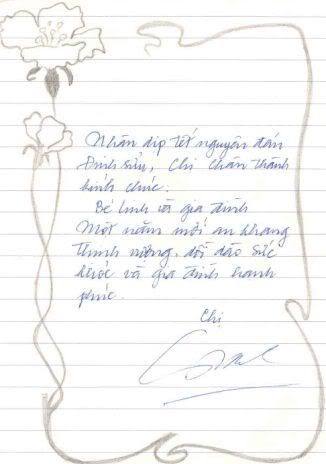 Nhân dịp tết nguyên đán
Đinh Sửu, Chị chân thành
kính chúc.
Bé Linh và gia đình
Một năm mới an khang
thịnh vượng, dồi dào sức
khoẻ và gia đình hạnh
phúc.
Chị